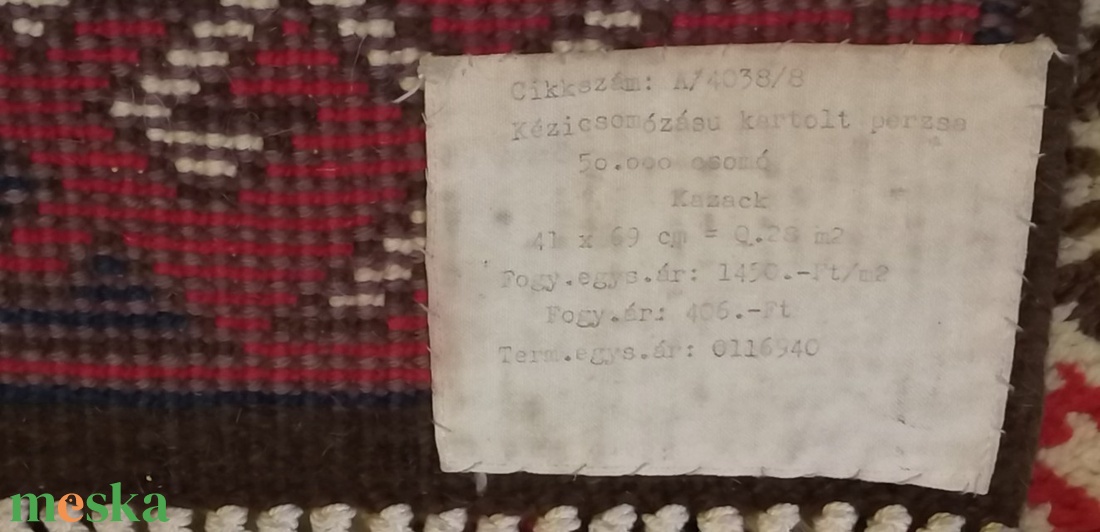 Cikkszám: A/4038/8
Kézicsomózásu kartolt perzsa
50.000 csomó
Kazack
41 x 69 cm = 0.28 m2
Fogy.egys.ár: 1450.-Ft/m2
Fogy.ár: 406.-Ft
Term.egys.ár: 0116940
meska